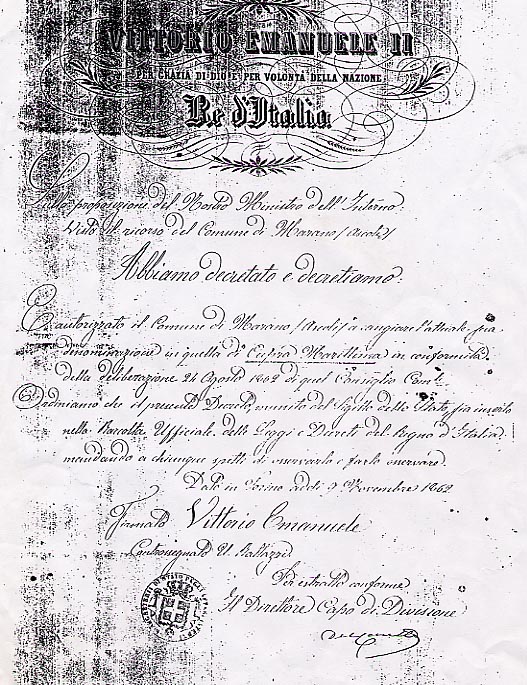 VITTORIO EMANUELE II
PER GRAZIA DI DIO E PER VOLONTÀ DELLA NAZIONE
Re d'Italia
Sulla proposizione del Nostro Ministro dell'Interno
Visto il ricorso del Comune di Marano (Ascoli)
Abbiamo decretato e decretiamo:
È autorizzato il Comune di Marano (Ascoli) a cangiare l'attuale sua
denominazione in quella di Cupra Marittima in conformità
della deliberazione 24 Agosto 1862 di quel Consiglio Comle.
Ordiniamo che il presente Decreto, munito del Sigillo dello Stato, sia inserto
nella Raccolta Ufficiale delle Leggi e Decreti del Regno d'Italia
mandando a chiunque spetti di osservarlo e farlo osservare.
Dato in Torino addì 9 Novembre 1862
Firmato Vittorio Emanuele
Controsegnato U. Rattazzi
Per estratto conforme
Il Direttore Capo di Divisione